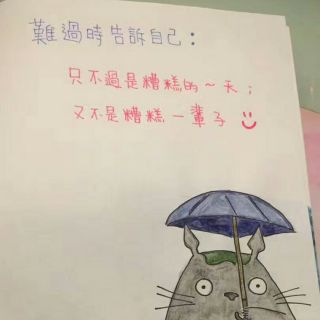 難過時告訴自己：
只不過是糟糕的一天；
又不是糟糕一輩子